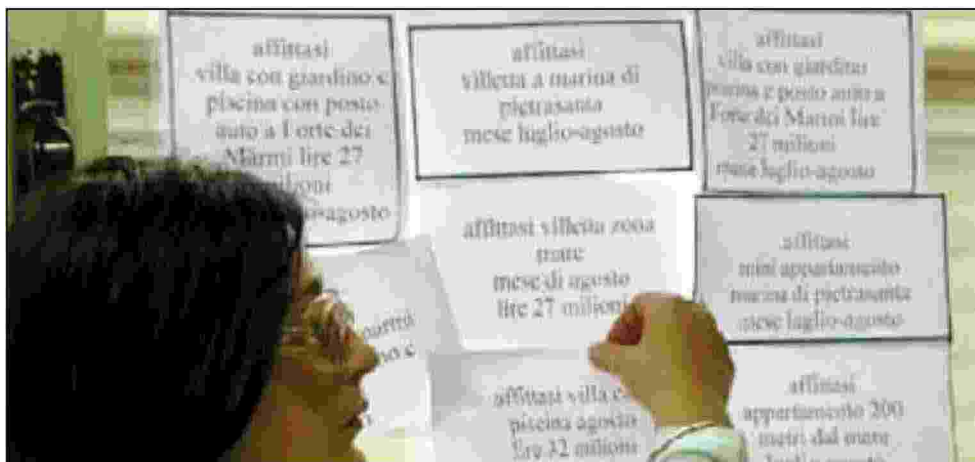 affittasi
villa con giardino e
piscina con posto
auto a Forte dei
Marmi lire 27
milioni
-agosto
affittasi
villetta a marina di
pietrasanta
mese luglio-agosto
affittasi
villa con giardino
piscina e posto auto a
Forte dei Marmi lire
27 milioni
mese luglio-agosto
affittasi villetta zona
mare
mese di agosto
lire 27 milioni
affittasi
mini appartamento
marina di pietrasanta
mese luglio-agosto
affittasi villa
piscina agosto
lire 32 milioni
affittasi
appartamento 200
metri dal mare